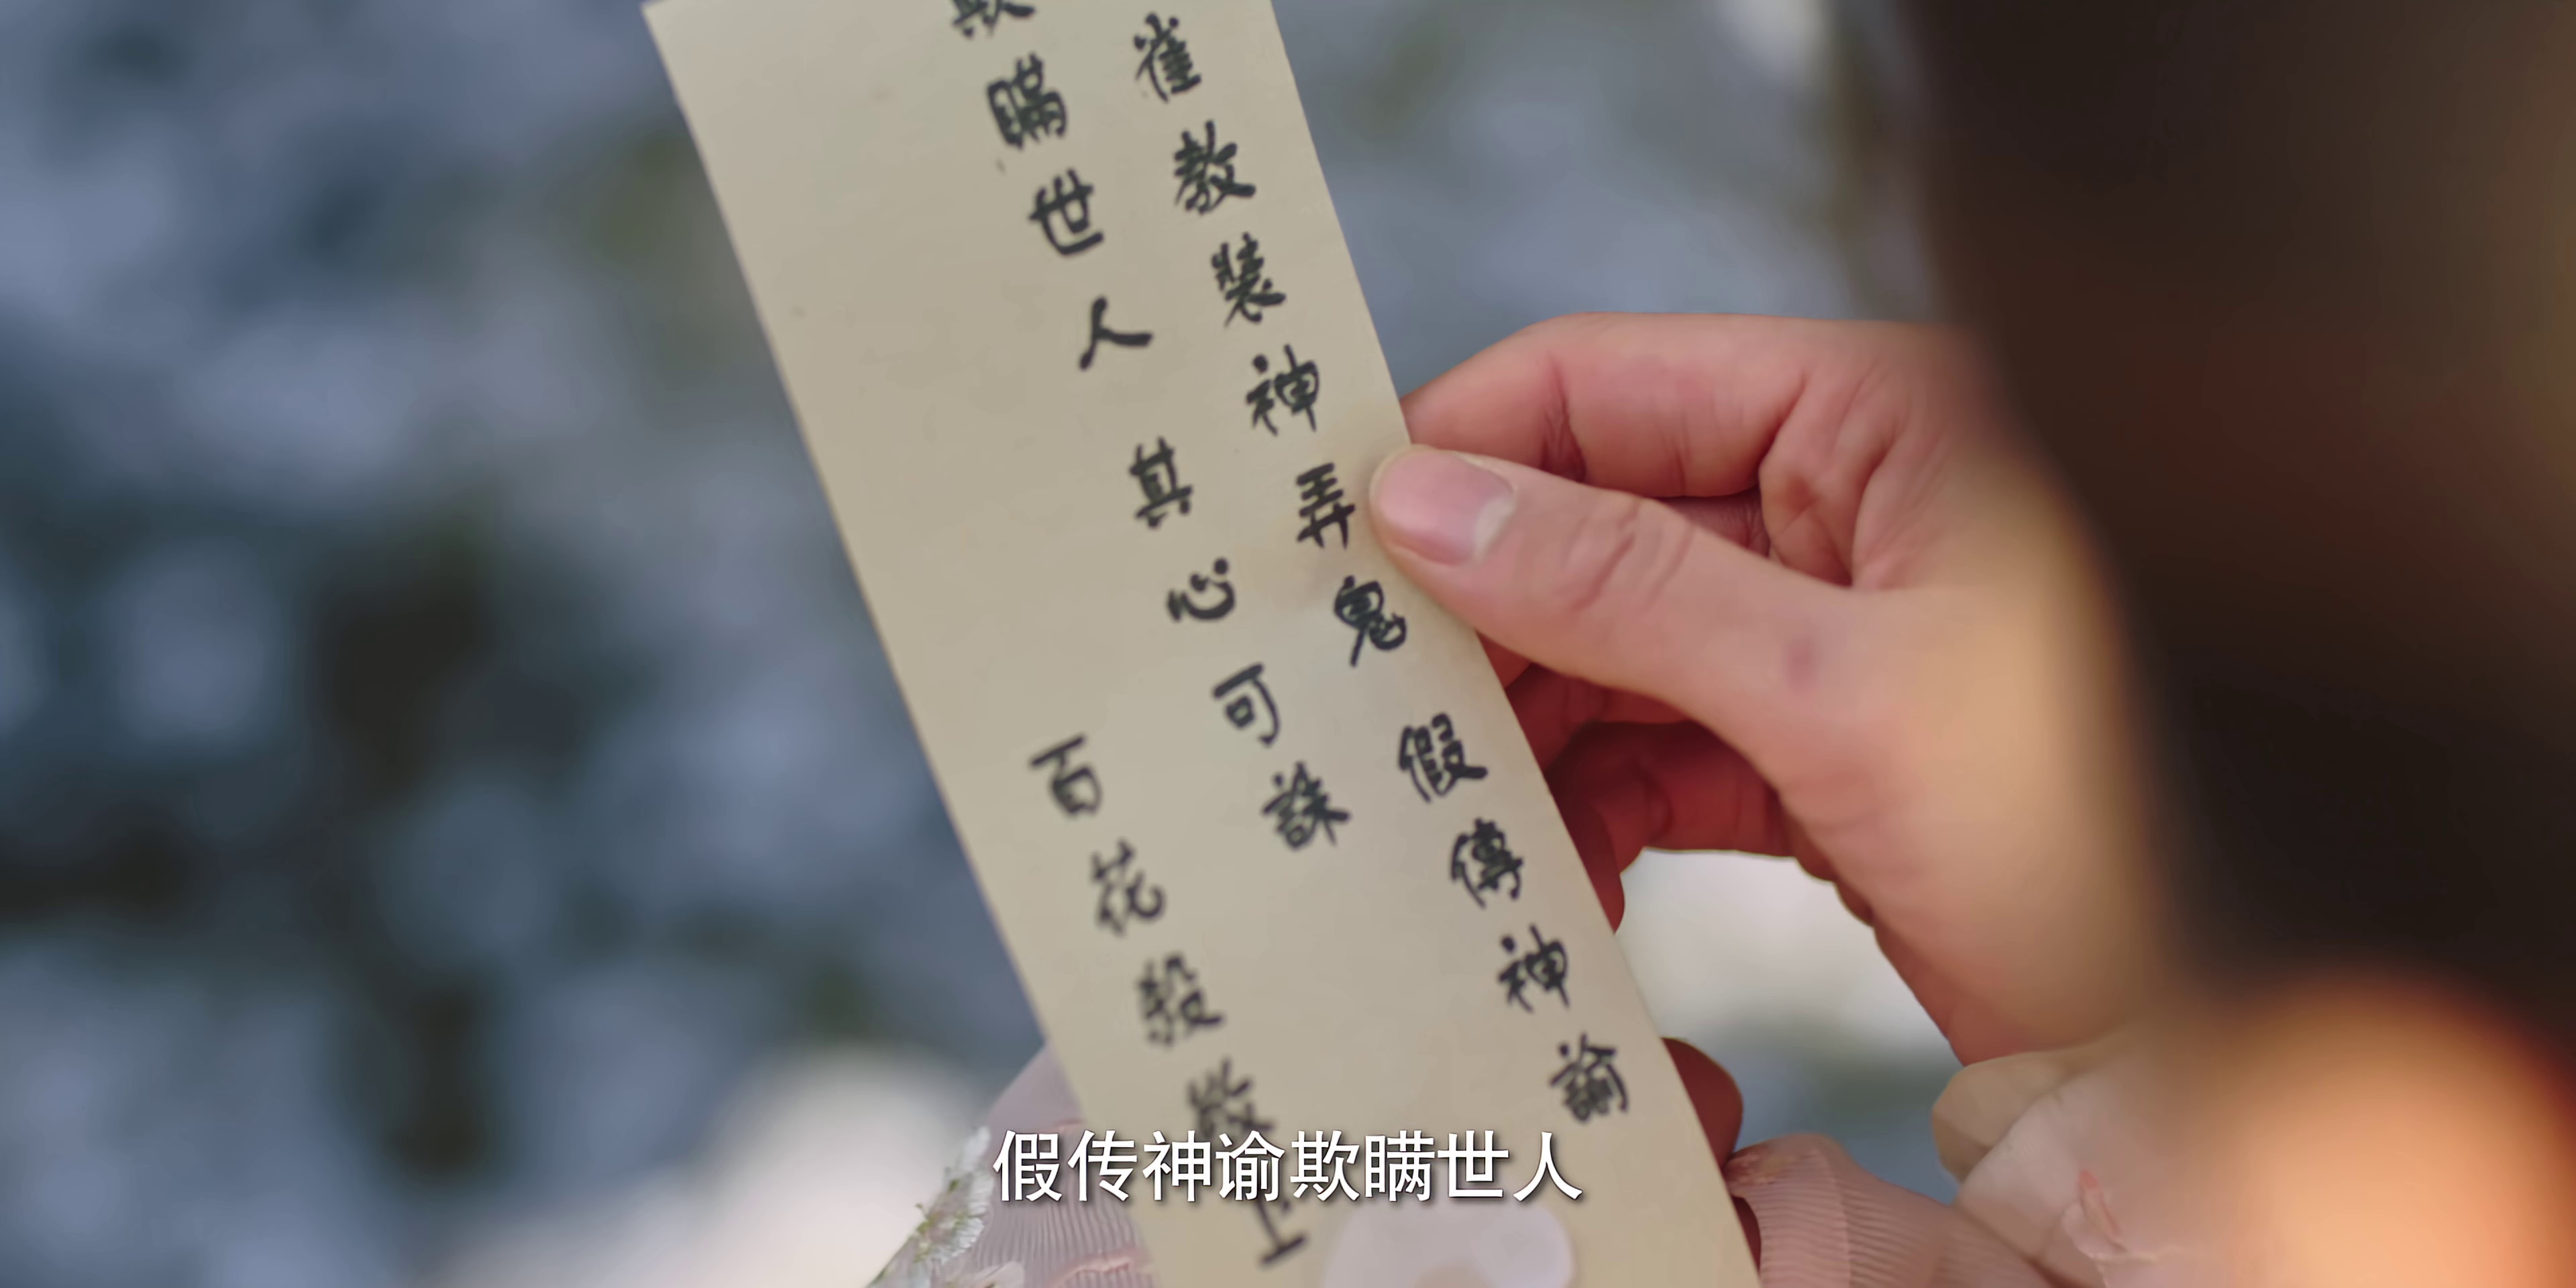 雀教裝神弄鬼 假傳神諭
欺瞞世人 其心可誅
百花殺敬上
假传神谕欺瞒世人